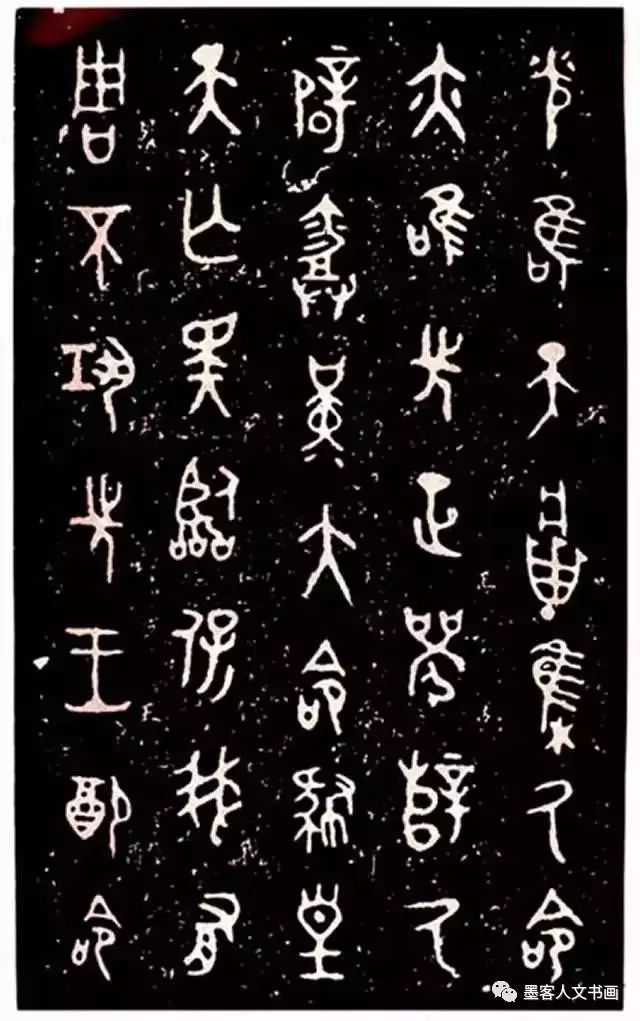 光唯天將集厥命
亦唯先正襄辥厥
辟勞堇大命肆皇
天亡斁臨保我有
周不巩先王配命
墨客人文书画